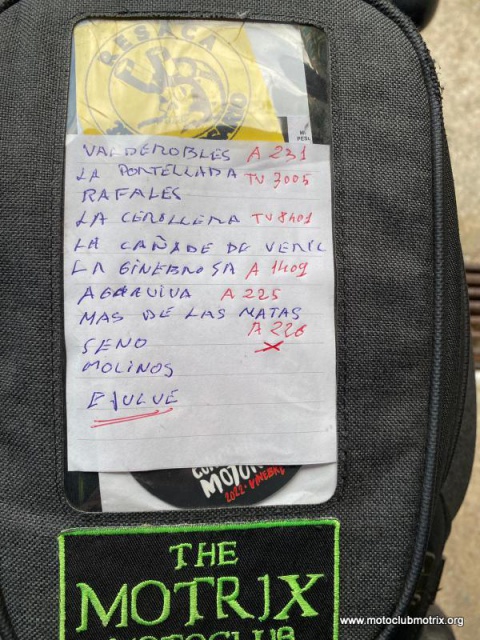 RESACA
VALDEROBLES A 231
LA PORTELLADA TV 3005
RAFALES
LA CEROLLERA TV 8401
LA CAÑADE DE VERIC
LA GINEBROSA A 1409
AGUAVIVA A 225
MAS DE LAS MATAS
A 226
SENO X
MOLINOS
EJULVE
MOTOR
2022
THE
MOTRIX
MOTOCLUB
www.motoclubmotrix.org